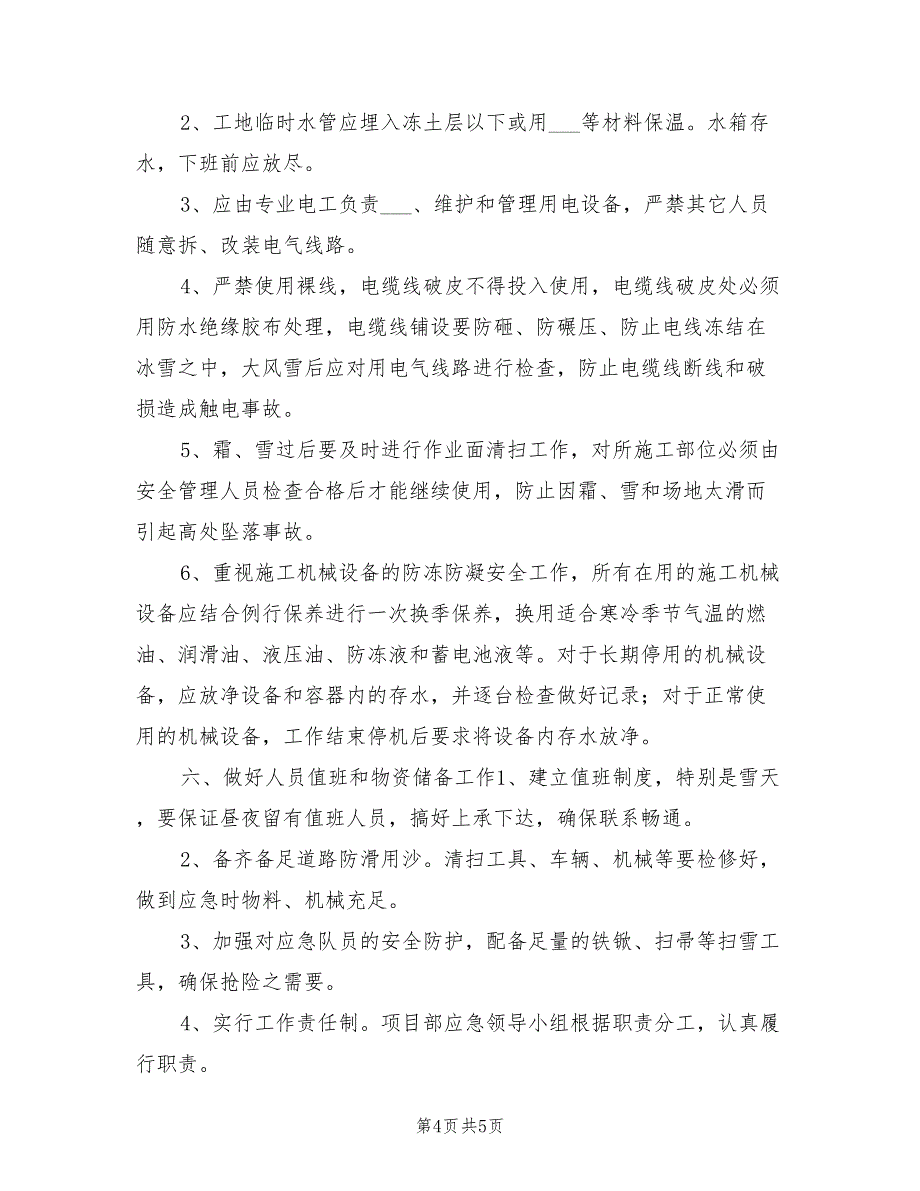 2、工地临时水管应埋入冻土层以下或用___等材料保温。水箱存
水，下班前应放尽。
3、应由专业电工负责___、维护和管理用电设备，严禁其它人员
随意拆、改装电气线路。
4、严禁使用裸线，电缆线破皮不得投入使用，电缆线破皮处必须
用防水绝缘胶布处理，电缆线铺设要防砸、防碾压、防止电线冻结在
冰雪之中，大风雪后应对用电气线路进行检查，防止电缆线断线和破
损造成触电事故。
5、霜、雪过后要及时进行作业面清扫工作，对所施工部位必须由
安全管理人员检查合格后才能继续使用，防止因霜、雪和场地太滑而
引起高处坠落事故。
6、重视施工机械设备的防冻防凝安全工作，所有在用的施工机械
设备应结合例行保养进行一次换季保养，换用适合寒冷季节气温的燃
油、润滑油、液压油、防冻液和蓄电池液等。对于长期停用的机械设
备，应放净设备和容器内的存水，并逐台检查做好记录；对于正常使
用的机械设备，工作结束停机后要求将设备内存水放净。
六、做好人员值班和物资储备工作1、建立值班制度，特别是雪天
，要保证昼夜留有值班人员，搞好上承下达，确保联系畅通。
2、备齐备足道路防滑用沙。清扫工具、车辆、机械等要检修好，
做到应急时物料、机械充足。
3、加强对应急队员的安全防护，配备足量的铁锨、扫帚等扫雪工
具，确保抢险之需要。
4、实行工作责任制。项目部应急领导小组根据职责分工，认真履
行职责。
第4页共5页